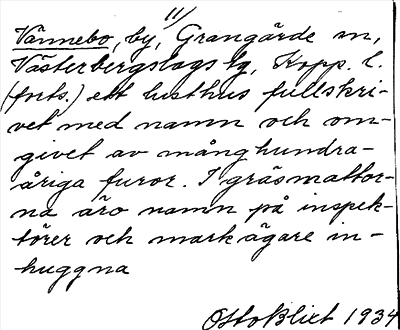 11/
Vännebo, by, Grangärde sn,
Västerbergslags tg, Kopp. l.
(forts.) ett lusthus fullskri-
vet med namn och om-
givet av månghundra-
åriga furor. I gräsmattor-
na äro namn på inspek-
törer och markägare in-
huggna
Otto Blixt 1934